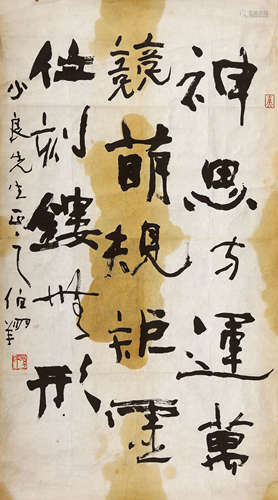 神思方運萬
競萌規矩虛
位刻鏤無形
少良先生正之 伯翔